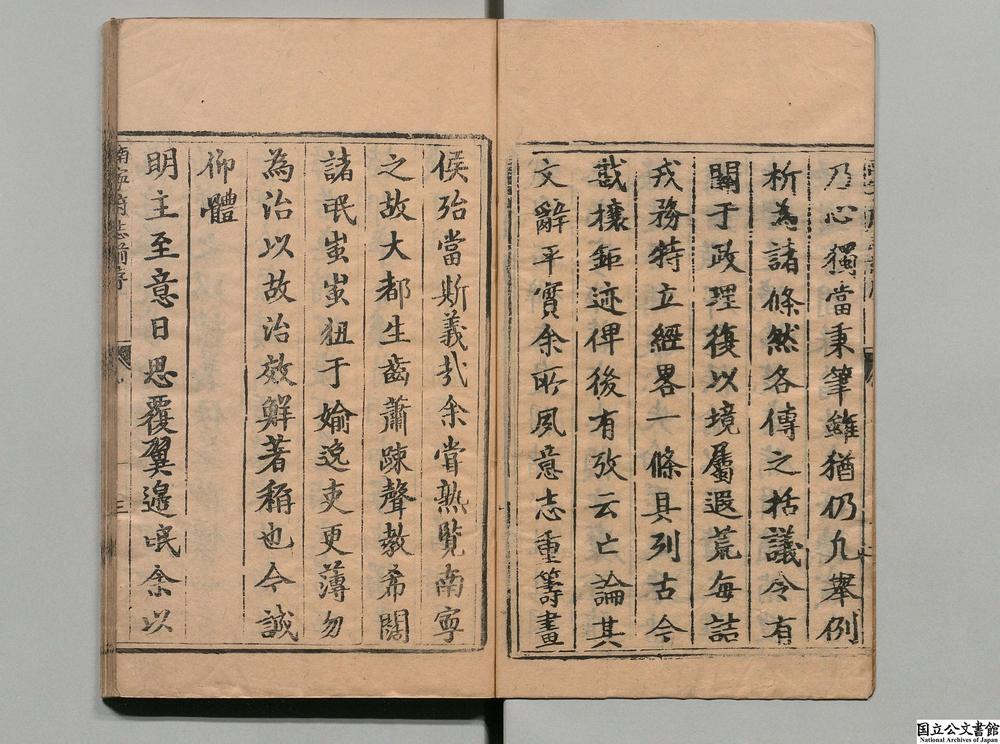 乃心獨當秉筆雖猶仍九舉例
析為諸條然各傳之括議令有
關于政理復以境屬遐荒每詰
戎務特立經畧一條具列古今
戡攘鉅迹俾後有攷云亡論其
文辭平實余所夙意志重籌畫
侯殆當斯義哉余嘗熟覧南寧
之故大都生齒蕭踈聲教希闊
諸氓蚩蚩狃于媮逸吏更薄勿
為治以故治效鮮著稱也今誠
仰體
明主至意日思覆翼邊氓余以
南寧府志前序
三
国立公文書館
National Archives of Japan